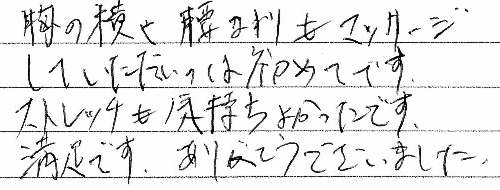 胸の横や腰まわりもマッサージ
していただいのは初めてです.
ストレッチも気持ちよかったです.
満足です. ありがとうございました.